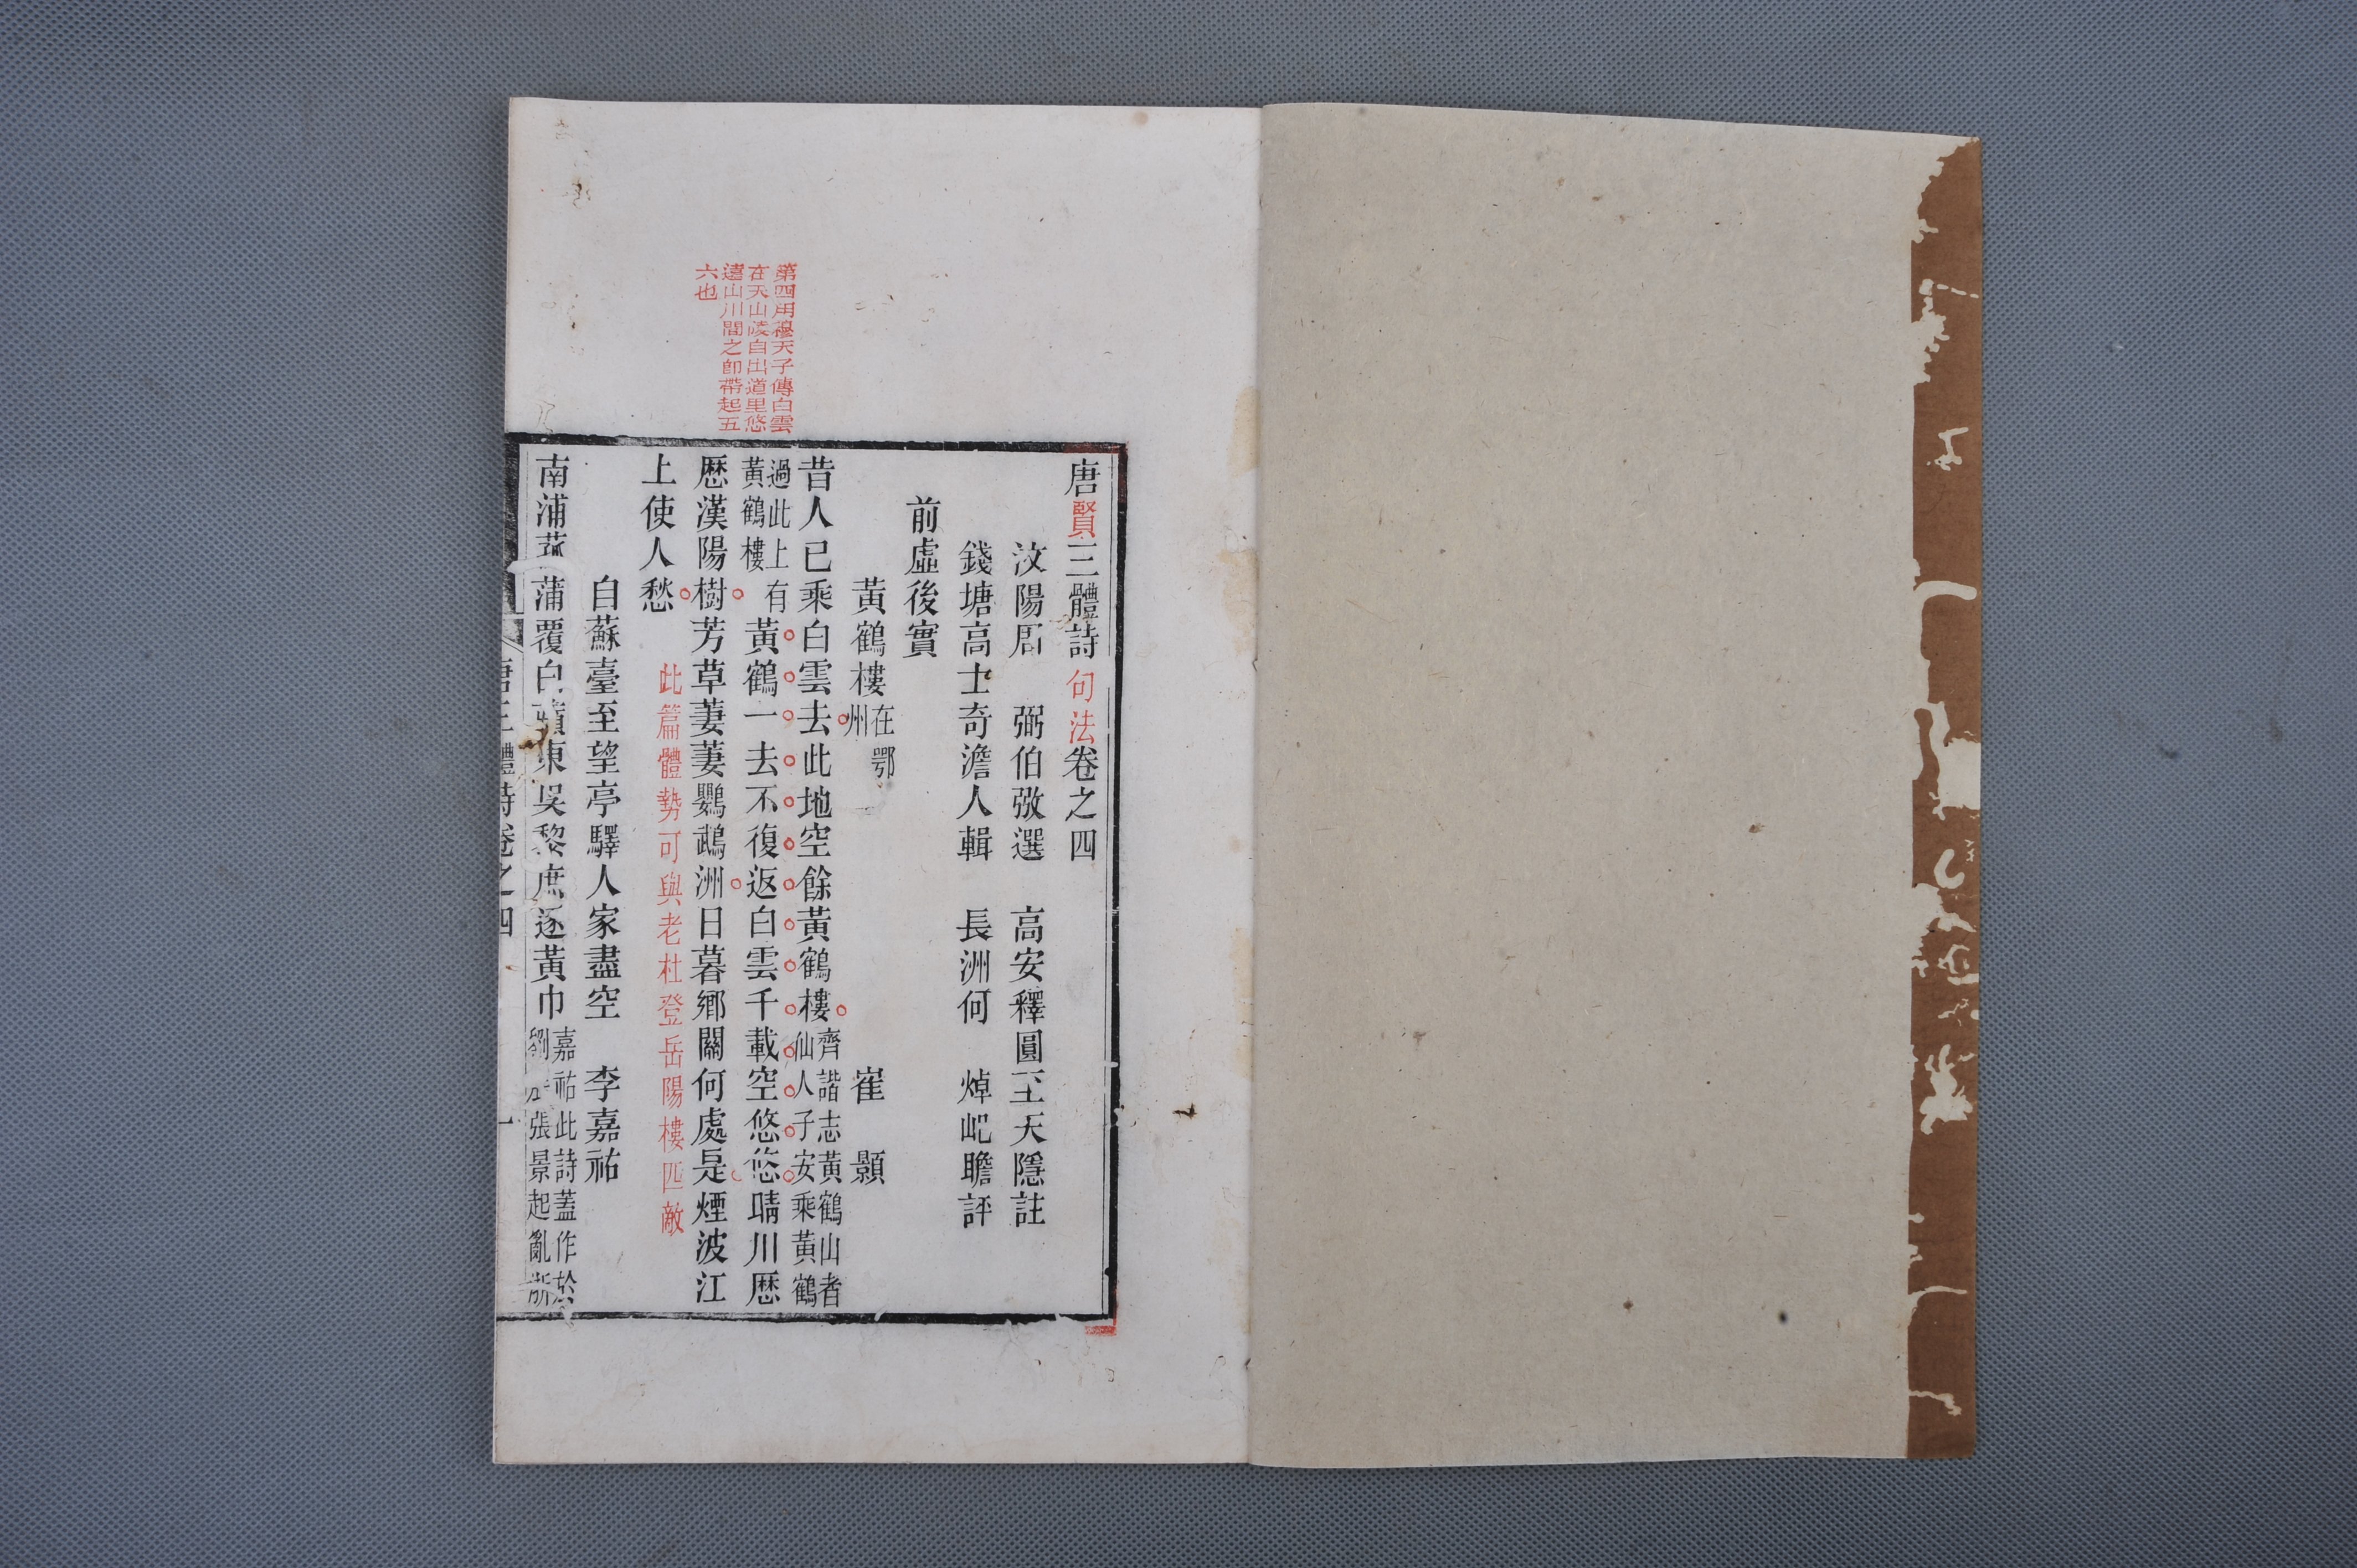 第四用穆天子傳白雲
在天山陵自出道里悠
遠山川間之卽帶起五
六也
唐賢三體詩句法卷之四
汶陽周 弼伯弜選 高安釋圓至天隱註
錢塘高士奇澹人輯 長洲何 焯屺瞻評
前虛後實
黃鶴樓在鄂州 崔 顥
昔人已乘白雲去此地空餘黃鶴樓齊諧志黃鶴山者仙人子安乘黃鶴
過此上有黃鶴樓黃鶴一去不復返白雲千載空悠悠晴川歷
歷漢陽樹芳草萋萋鸚鵡洲日暮鄉關何處是煙波江
上使人愁 此篇體勢可與老杜登岳陽樓匹敵
自蘇臺至望亭驛人家盡空 李嘉祐
南浦菰蒲覆白蘋東吳黎庶逐黃巾嘉祐此詩蓋作於劉 張景起亂所
唐三體詩卷之四 一